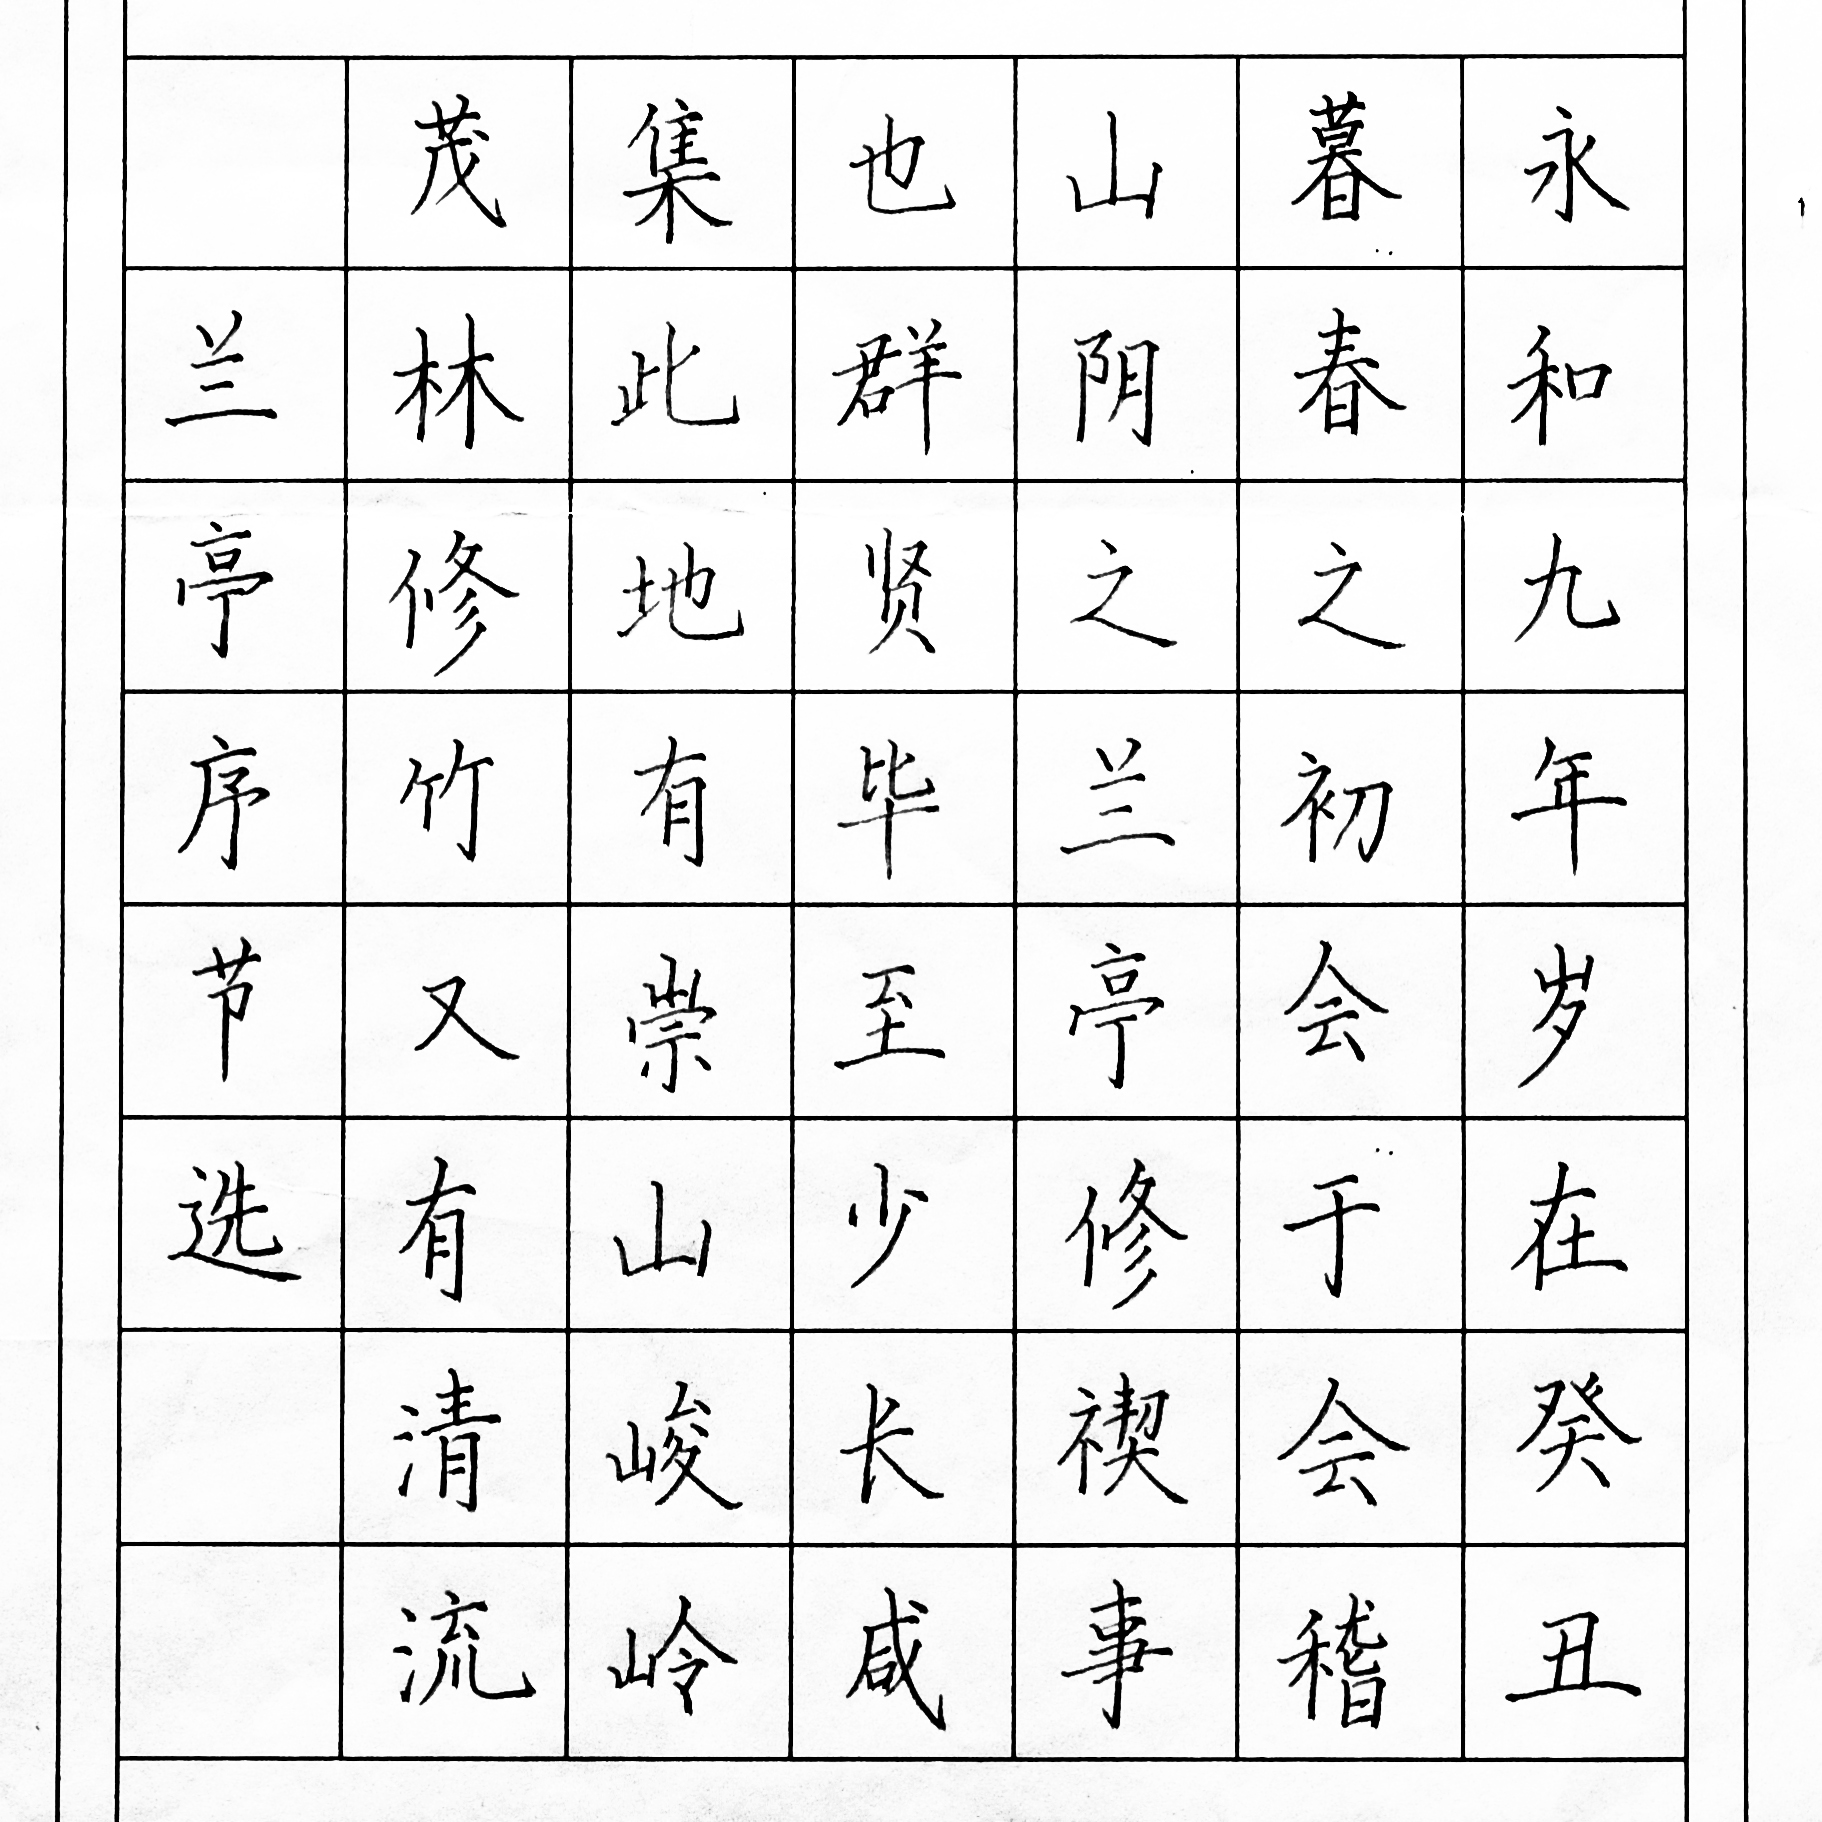 永和九年岁在癸丑
暮春之初会于会稽
山阴之兰亭修禊事
也群贤毕至少长咸
集此地有崇山峻岭
茂林修竹又有清流
兰亭序节选